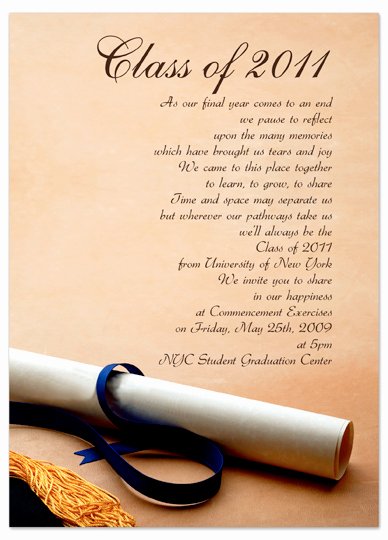 Class of 2011
As our final year comes to an end
we pause to reflect
upon the many memories
which have brought us tears and joy
We came to this place together
to learn, to grow, to share
Time and space may separate us
but wherever our pathways take us
we'll always be the
Class of 2011
from University of New York
We invite you to share
in our happiness
at Commencement Exercises
on Friday, May 25th, 2009
at 5pm
NYC Student Graduation Center